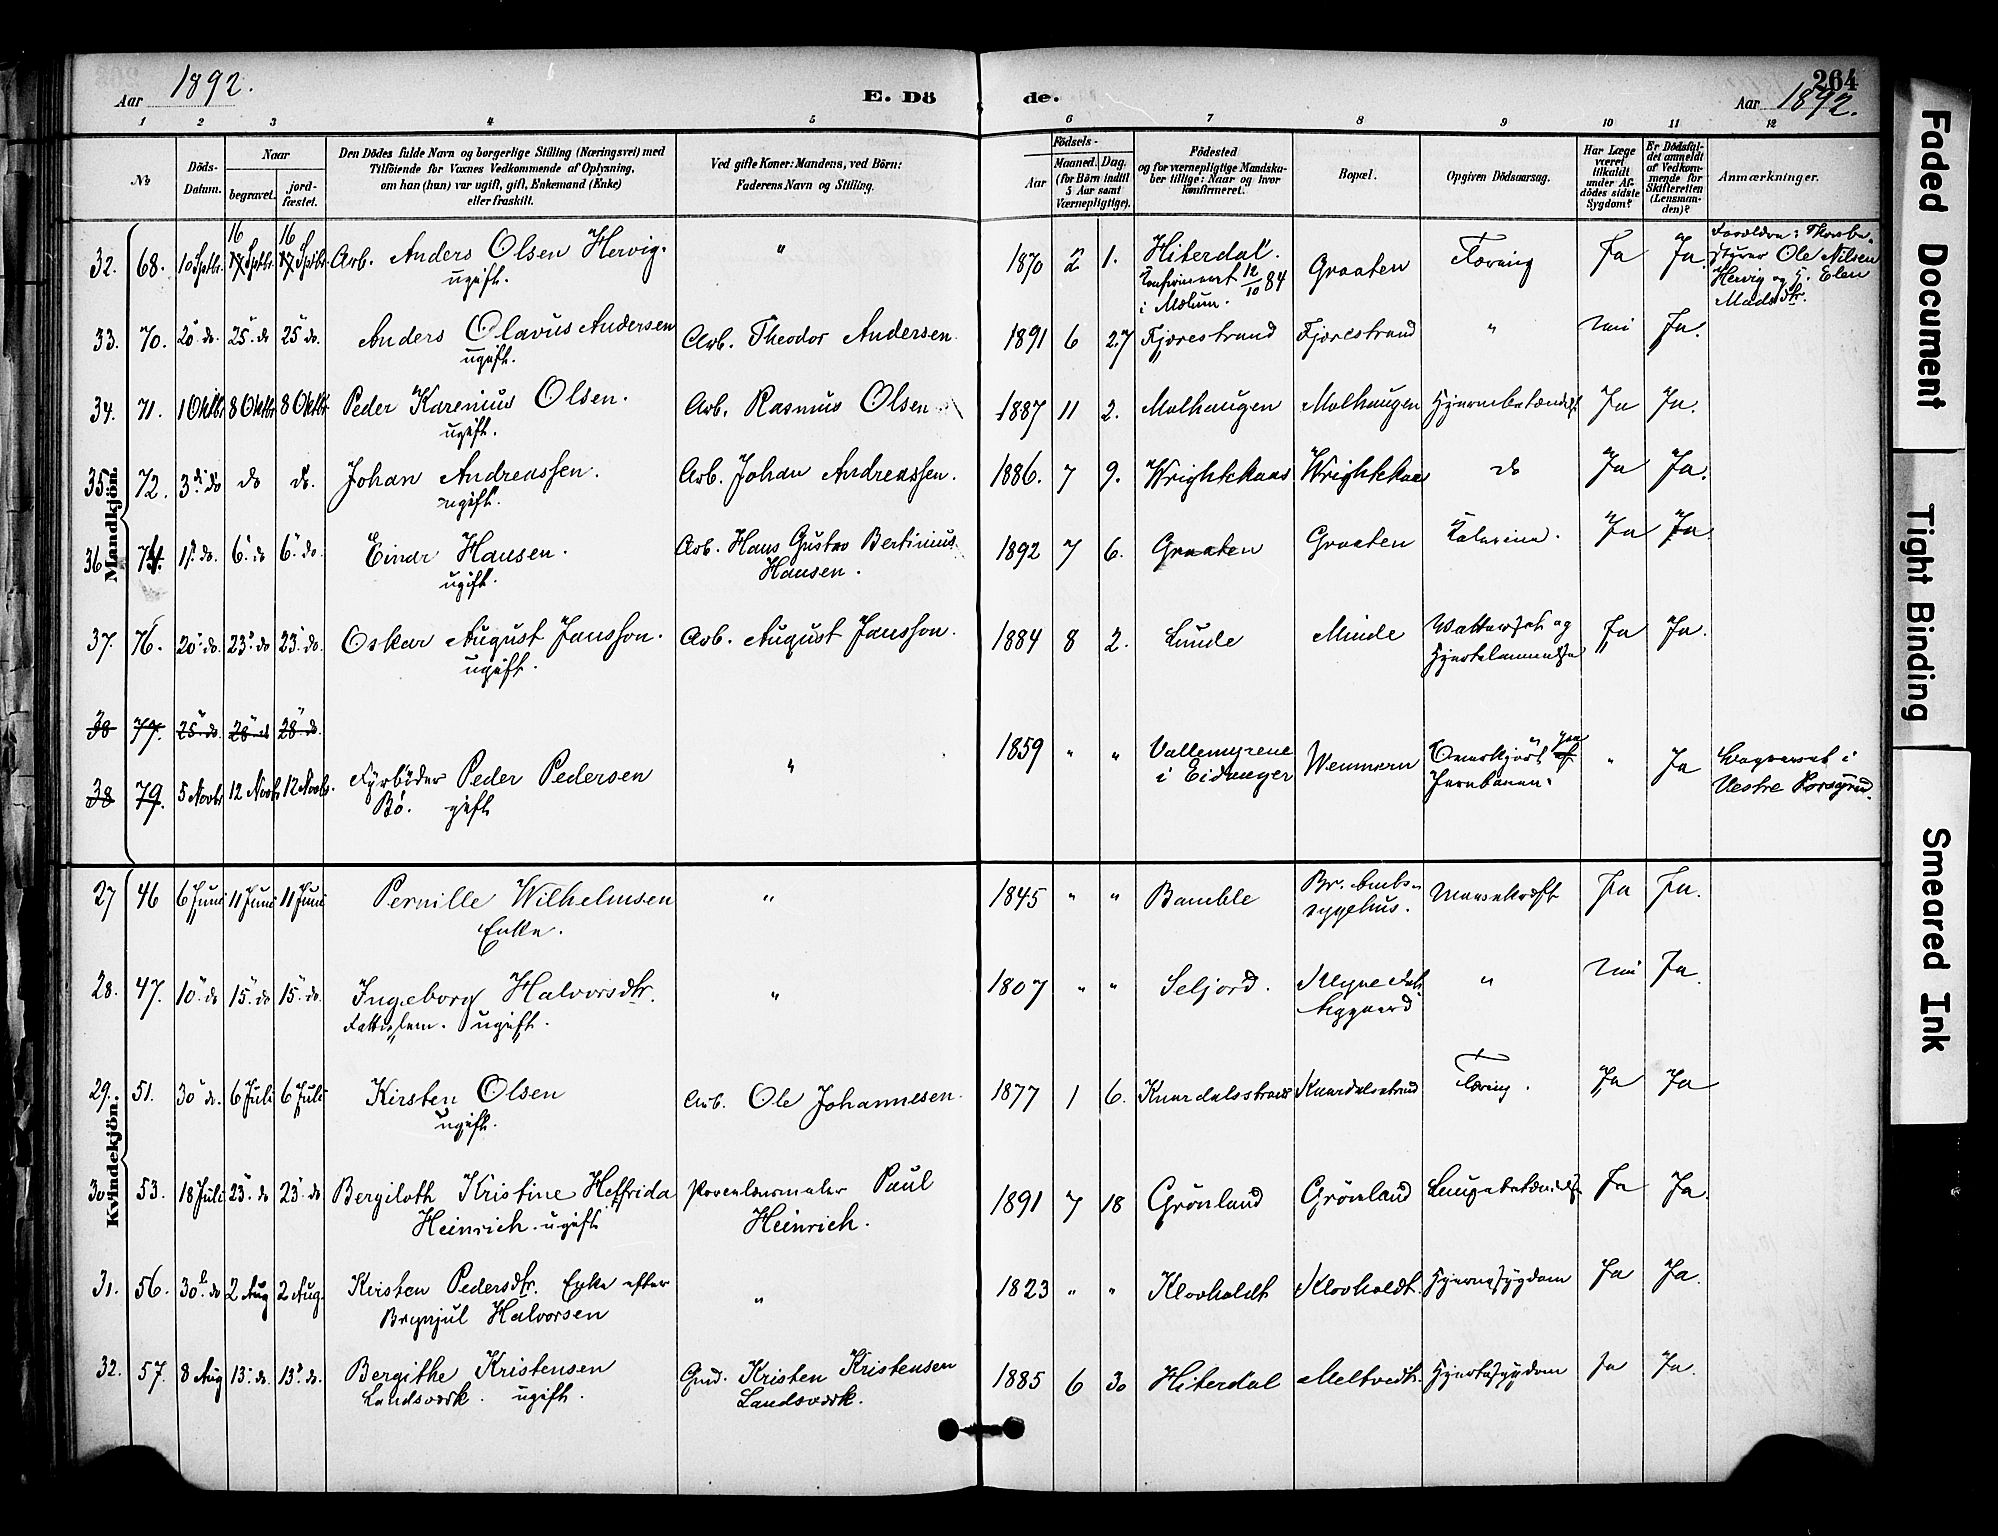 264
Aar 1892.
E. Döde.
Aar 1892.
1 2 3 4 5 6 7 8 9 10 11 12
No
Döds-Datum.
Naar
begravet.
jordfæstet.
Den Dödes fulde Navn og borgerlige Stilling (Næringsvei) med
Tilföiende for Voxnes Vedkommende af Oplysning,
om han (hun) var ugift, gift, Enkemand (Enke)
eller fraskilt.
Ved gifte Koner: Mandens, ved Börn:
Faderens Navn og Stilling.
Födsels-
Aar
Maaned. Dag.
(for Börn indtil
5 Aar samt
Værnepligtige).
Födested
og for værnepligtige Mandskaber tillige: Naar og hvor
konfirmeret.
Bopæl.
Opgiven Dödsaarsag.
Har Læge
været
tilkaldt
under Afdödes sidste
Sygdom?
Er Dödsfaldet anmeldt
af Vedkommende for
Skifteretten
(Lensmanden)?
Anmærkninger.
Mandkjön.
32. 68. 10 Septbr. 16 17 Septbr. 16 17 Septbr. Arb. Anders Olsen Hervig. ugift. " 1870 2 1. Hiterdal. Konfirmeret 12/10 84 i Mælum. Graaten Tæring Ja Ja. Forældre: Ole Nilsen Hervig og H. Elen Madsdtr.
33. 70. 20 do. 25 do 25 do. Anders Olavus Andersen ugift. Arb. Theodor Andersen. 1891 6 27 Fjærestrand Fjærestrand " nei Ja.
34. 71. 1 Oktbr 8 Oktbr 8 Oktbr Peder Karenius Olsen. ugift. Arb. Rasmus Olsen 1887 11 2. Molhaugen Molhaugen Hjernebetændelse Ja Ja.
35. 72. 3 do do do. Johan Andreassen. ugift. Arb. Johan Andreassen. 1886. 7 9. do Ja Ja.
36 74. 1 do. 6 do 6 do. Einar Hansen. ugift. Arb. Hans Gustav Bertinius Hansen. 1892 7 6. Graaten Graaten Kolerine. Ja Ja
37. 76. 20 do. 23 do 23 do. Oskar August Jansson. ugift. Arb. August Jansson. 1884 8 2. Lunde Minde Wattersot og Hjertelammelse Ja Ja.
38 77. 25 do. 28 do 28 do.
38 79. 5 Novbr 12 Novbr 12 Novbr. Fyrböder Peder Pedersen Bö. gift " 1859 " " Vallemyrene i Eidanger Wemmern Overkjört paa af Jernbanen. " Ja Begravet i Vestre Porsgrund.
Kvindekjön.
27 46 6 Juni 11 Juni 11 Juni Pernille Wilhelmsen Enke. " 1845 " " Bamble Br. Amts-sygehus. Mavekræft Ja Ja.
28. 47. 10 do 15 do 15 do. Ingeborg Halvorsdtr. Fattiglem. ugift. " 1807 " " Seljord. nei Ja.
29. 51. 30 do. 6 Juli 6 Juli Kirsten Olsen ugift. Arb. Ole Johannesen. 1877 1 6. Knardalsstrand Knardalsstrand Tæring. Ja Ja
30 53. 18 Juli 23 do 23 do Bergiloth Kristine Helfrida Heinrich. ugift Porcelansmaler Paul Heinrich. 1891 7 18 Grönland Grönland Lungebetændelse Ja Ja.
31. 56. 30 do 2 Aug 2 Aug. Kirsten Pedersdtr. Enke efter Brynjul Halvorsen " 1823 " " Klovholdt Klovholdt. Hjernesygdom Ja Ja.
32. 57. 8 Aug 13 do. 13 do. Bergithe Kristensen Landsværk. ugift. Gmd. Kristen Kristensen Landsværk. 1885 6 30 Hiterdal Meltvedt. Hjertesygdom Ja Ja.
Faded Document
Tight Binding
Smeared Ink